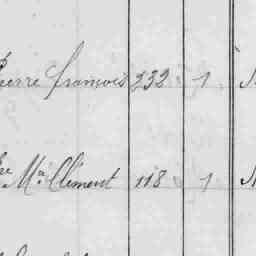 Pierre francois 232 1
Ma Clement 118 1